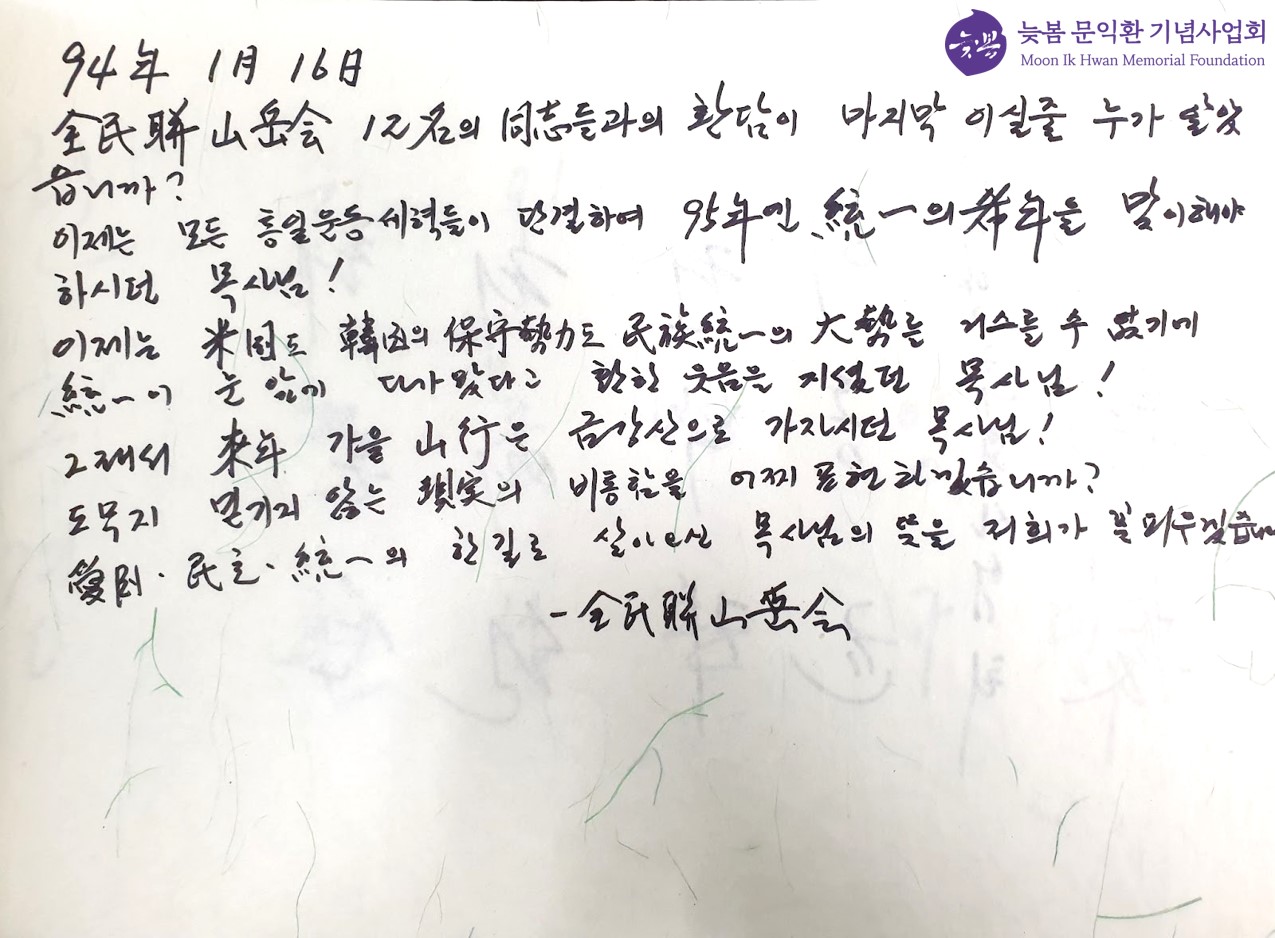 늦봄 문익환 기념사업회
Moon Ik Hwan Memorial Foundation
늦봄
94年 1月 16日
全民聯 山岳会 12名의 同志들과의 환담이 마지막 이실줄 누가 알았
읍니까?
이제는 모든 통일운동세력들이 단결하여 95年인 統一의 希年을 맞이해야
하시던 목사님!
이제는 米国도 韓国의 保守勢力도 民族統一의 大勢를 거스를 수 없기에
統一이 눈 앞에 다가 왔다고 환한 웃음을 지셨던 목사님!
그래서 來年 가을 山行은 금강산으로 가자시던 목사님!
도무지 믿기지 않는 現実의 비통함을 어찌 표현하겠습니까?
愛国·民主·統一의 한길로 살아오신 목사님의 뜻을 저희가 꽃피우겠습니
- 全民聯山岳会